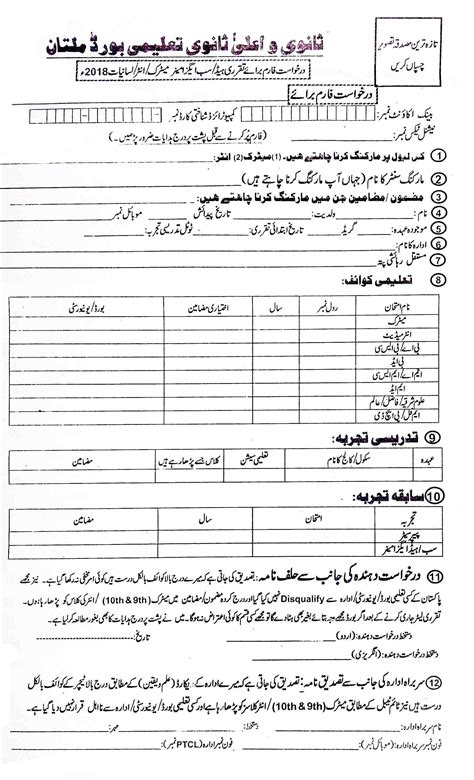 ثانوی و اعلیٰ ثانوی تعلیمی بورڈ ملتان
تازہ ترین مصدقہ تصویر
چسپاں کریں
درخواست فارم برائے تقرری ہیڈ/سب ایگزامینر میٹرک/انٹر/لسانیات 2018ء
درخواست فارم برائے
بینک اکاؤنٹ نمبر: کمپیوٹرائزڈ شناختی کارڈ نمبر:
نیشنل ٹیکس نمبر: (فارم پُر کرنے سے قبل پشت پر درج ہدایات ضرور پڑھیں۔)
1 کس لیول پر مارکنگ کرنا چاہتے ہیں۔ (1) میٹرک (2) انٹر:
2 مارکنگ سنٹر کا نام (جہاں آپ مارکنگ کرنا چاہتے ہیں)
3 مضمون/مضامین جن میں مارکنگ کرنا چاہتے ہیں:
4 نام: ولدیت: تاریخ پیدائش موبائل نمبر:
5 موجودہ عہدہ: گریڈ تاریخ ابتدائی تقرری: ٹوٹل تدریسی تجربہ:
6 ادارہ کا نام:
7 مستقل رہائشی پتہ
8 تعلیمی کوائف:
نام امتحان رول نمبر سال اختیاری مضامین بورڈ/یونیورسٹی
میٹرک
انٹرمیڈیٹ
بی اے/بی ایس سی
بی ایڈ
ایم اے/ایم ایس سی
ایم ایڈ
علوم شرقیہ/فاضل/عالم
ایم فل/پی ایچ ڈی
9 تدریسی تجربہ:
عہدہ سکول/کالج کا نام تعلیمی سیشن کلاس جسے پڑھا رہے ہیں مضامین
10 سابقہ تجربہ:
تجربہ امتحان سال مضامین
پیپر سیٹر
سب/ہیڈ ایگزامینر
11 درخواست دہندہ کی جانب سے حلف نامہ: تصدیق کی جاتی ہے کہ میرے درج بالا کوائف بالکل درست ہیں کوئی امر مخفی نہ رکھا گیا ہے۔ نیز مجھے
پاکستان کے کسی تعلیمی بورڈ/یونیورسٹی/ادارہ سے Disqualify نہیں کیا گیا اور درج کردہ مضمون/مضامین میں میٹرک (10th & 9th) /انٹر کی کلاس کو پڑھا رہا ہوں۔
تقرری لیٹر جاری کرنے کے بعد اگر بورڈ مجھے وجہ بتائے بغیر بھی ہٹا دے گا تو مجھے کسی قسم کا کوئی اعتراض نہ ہوگا۔ میں نے پشت پر درج ہدایات کا بھی بغور مطالعہ کر لیا ہے۔
دستخط درخواست دہندہ: (اردو) تاریخ:
دستخط درخواست دہندہ: (انگریزی)
12 سربراہ ادارہ کی جانب سے تصدیق نامہ: تصدیق کی جاتی ہے کہ میرے ادارہ کے ریکارڈ (علم و یقین) کے مطابق درج بالا ٹیچر کے کوائف بالکل
درست ہیں نیز ٹائم ٹیبل کے مطابق میٹرک (10th & 9th) / انٹر کلاسز کو پڑھا رہا ہے اور کسی تعلیمی بورڈ/یونیورسٹی/ادارہ سے نااہل قرار نہیں دیا گیا۔
نام سربراہ ادارہ: دستخط: مہر:
فون نمبر سربراہ ادارہ: (موبائل نمبر): فون نمبر ادارہ (PTCL نمبر):